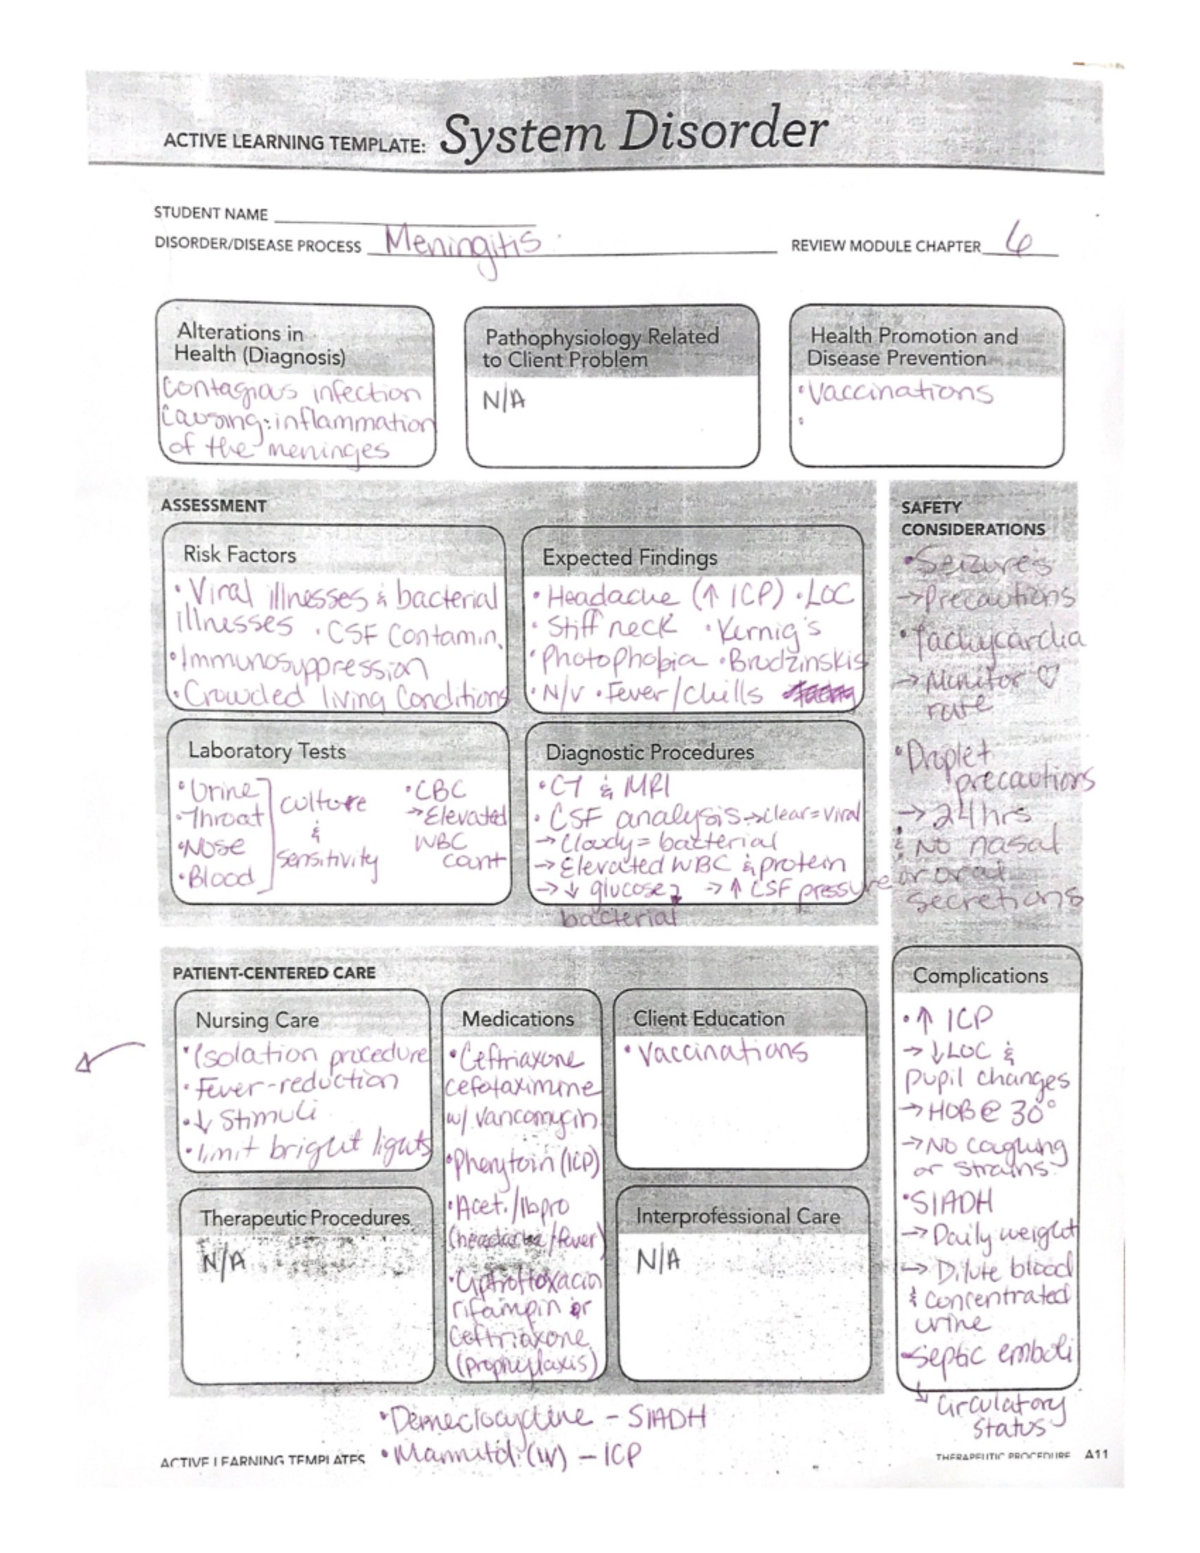 ACTIVE LEARNING TEMPLATE: System Disorder
STUDENT NAME
DISORDER/DISEASE PROCESS Meningitis
REVIEW MODULE CHAPTER 6
Alterations in
Health (Diagnosis)
Contagious infection
causing: inflammation
of the meninges
Pathophysiology Related
to Client Problem
N/A
Health Promotion and
Disease Prevention
• Vaccinations
•
ASSESSMENT
Risk Factors
• Viral illnesses & bacterial
illnesses • CSF Contamin.
• Immunosuppression
• Crowded living Conditions
Expected Findings
• Headache (↑ ICP) • LOC
• Stiff neck • Kernig's
• Photophobia • Brudzinskis
• N/V • Fever/chills
Laboratory Tests
• Urine
• Throat
• Nose
• Blood
culture
&
sensitivity
• CBC
→ Elevated
WBC
count
Diagnostic Procedures
• CT & MRI
• CSF analysis → clear = viral
→ Cloudy = bacterial
→ Elevated WBC & protein
→ ↓ glucose → ↑ CSF pressure
bacterial
SAFETY
CONSIDERATIONS
• Seizures
→ Precautions
• Tachycardia
→ Monitor ♡
rate
• Droplet
precautions
→ 24hrs
& No nasal
or oral
secretions
PATIENT-CENTERED CARE
Nursing Care
• Isolation procedure
• Fever-reduction
• ↓ Stimuli
• limit bright lights
Medications
• Ceftriaxone
cefotaximine
w/ vancomycin
• Phenytoin (ICP)
• Acet./Ibpro
(headache/fever)
• Ciprofloxacin
rifampin or
Ceftriaxone
(prophylaxis)
Client Education
• Vaccinations
Therapeutic Procedures
N/A
Interprofessional Care
N/A
Complications
• ↑ ICP
→ ↓ LOC &
pupil changes
→ HOB @ 30°
→ No coughing
or strains
• SIADH
→ Daily weight
→ Dilute blood
& concentrated
urine
• Septic emboli
↳ Circulatory
Status
• Demeclocycline - SIADH
• Mannitol (IV) - ICP
ACTIVE LEARNING TEMPLATES
THERAPEUTIC PROCEDURE A11